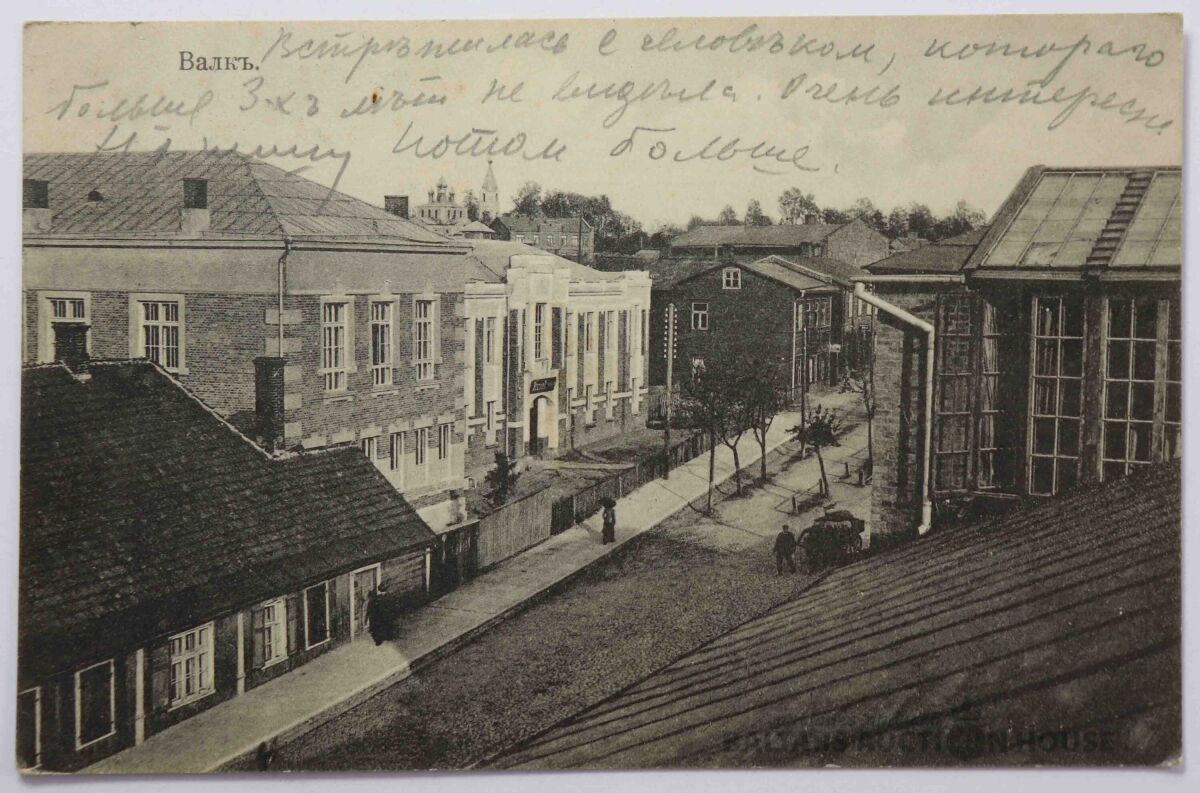 Валкъ.
Встрѣтилась с человѣком, котораго
больше 3-х ъ лѣт не видѣла. Очень интересно
потом больше.
BALTARS AUCTION HOUSE